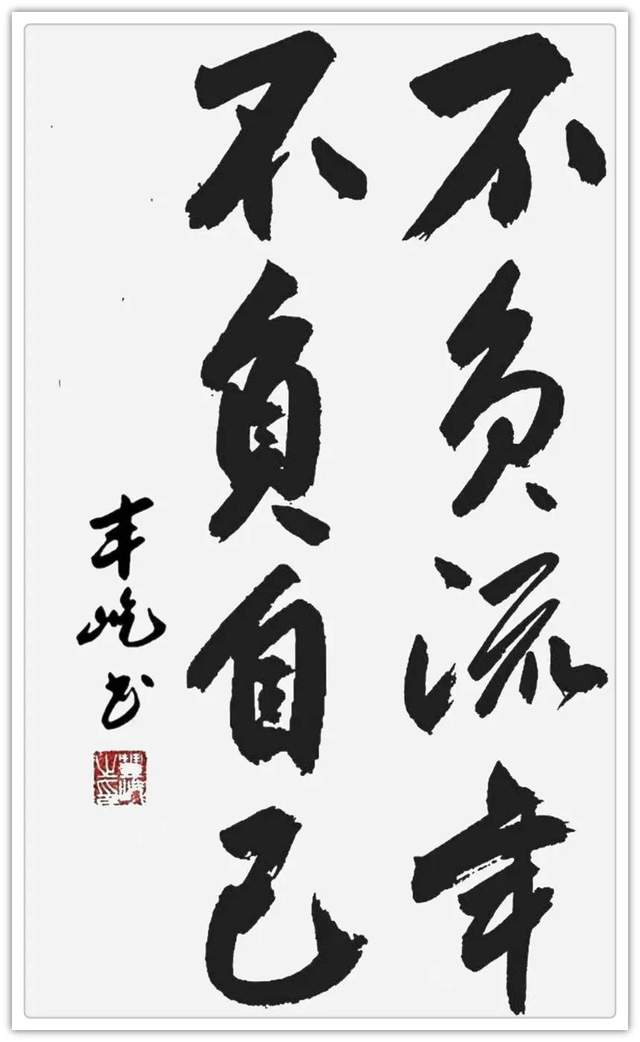 不负流年
不负自己
丰屹书